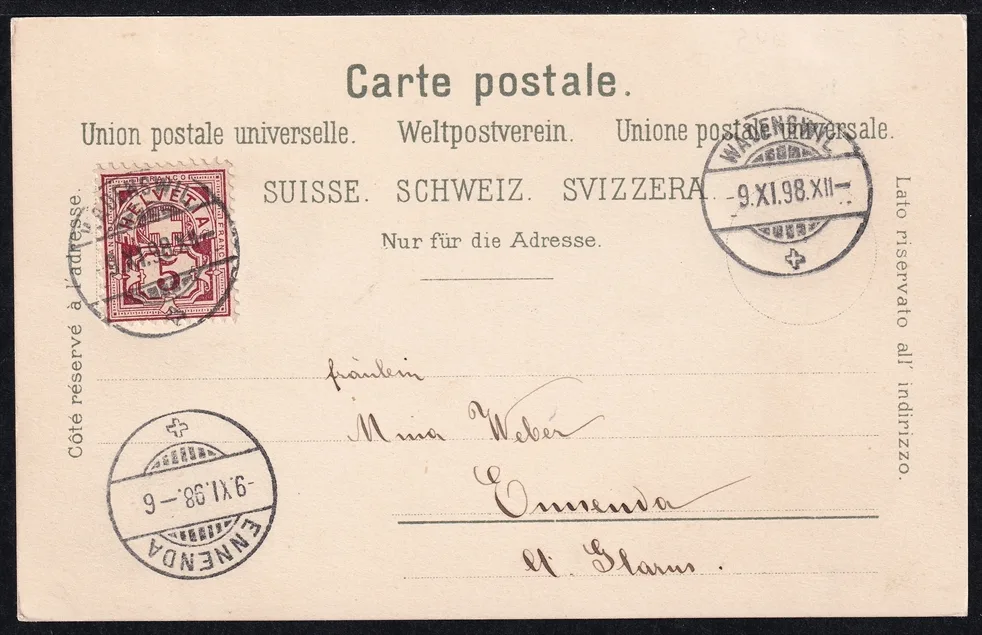 Carte postale.
Union postale universelle. Weltpostverein. Unione postale universale.
SUISSE. SCHWEIZ. SVIZZERA.
Nur für die Adresse.
Côté réservé à l'adresse.
Lato riservato all' indirizzo.
FRANCO
HELVETIA
5
WÄDENSWIL
-9.XI.98.XII-
fräulein
Mina Weber
Ennenda
Ct. Glarus.
-9.XI.98.-6
ENNENDA